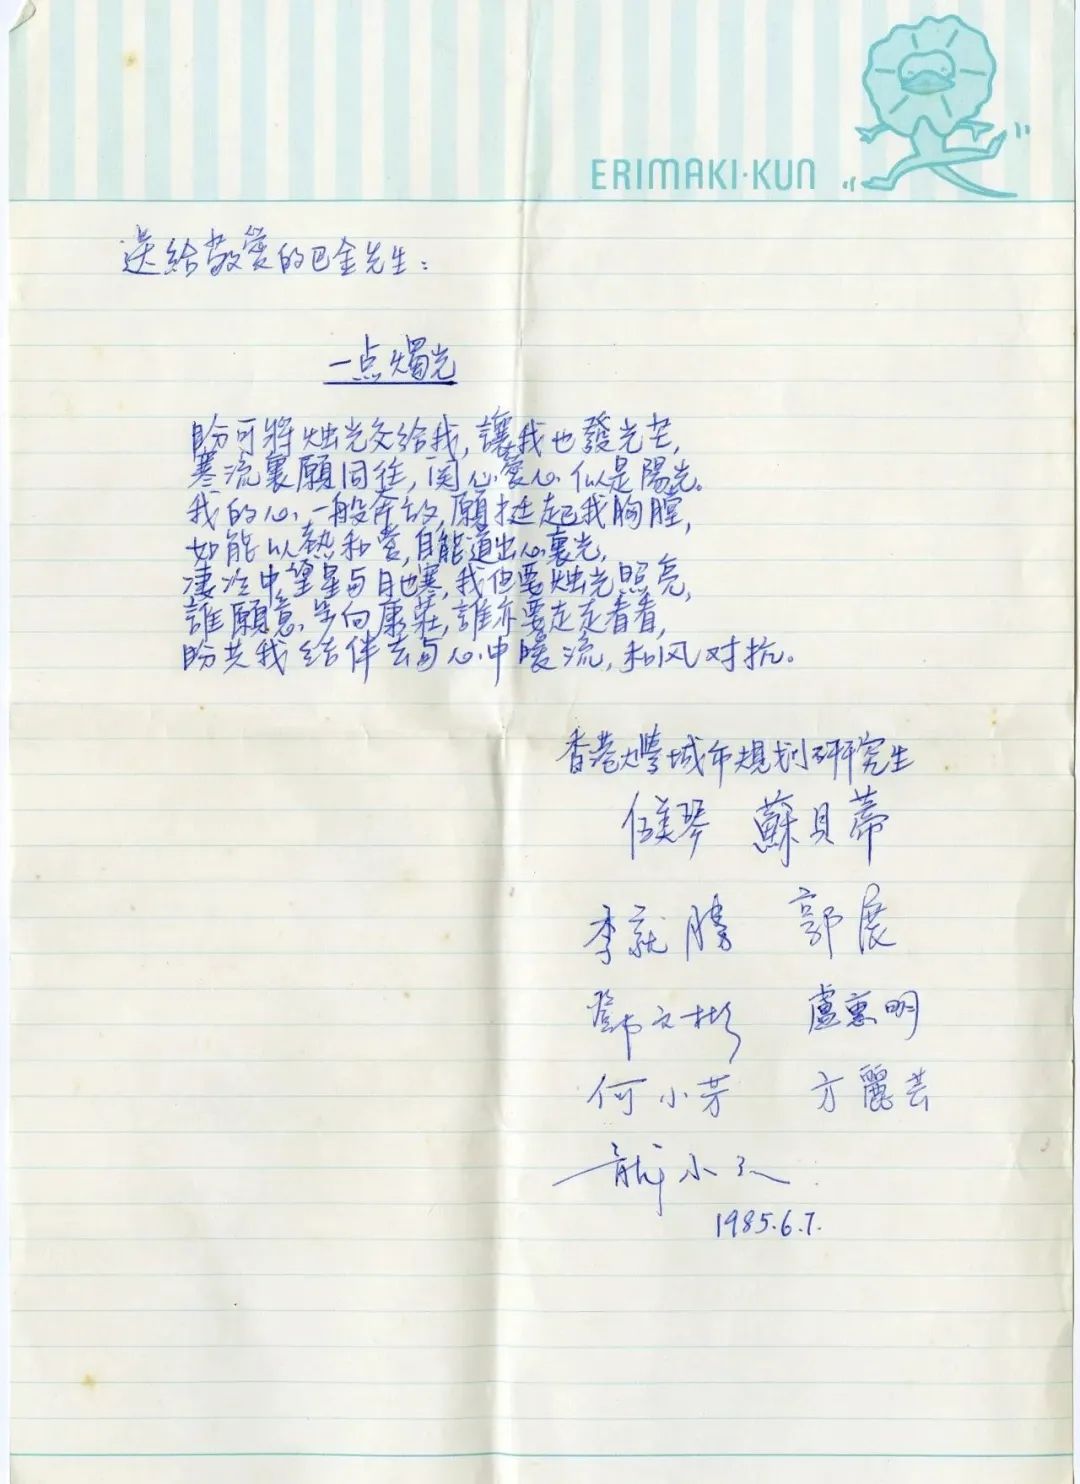 ERIMAKI·KUN
送給敬愛的巴金先生：
一点燭光
盼可將烛光交给我，讓我也發光芒，
寒流裏願同往，関心愛心似是陽光。
我的心，一般奔放，願挺起我胸膛，
如能以熱和愛，自能道出心裏光，
淒冷中望星与月也寒，我但要烛光照亮，
誰願意，步向康莊，誰亦要走走看看，
盼共我结伴去与心中暖流，和风对抗。
香港大學城市規划研究生
伍美琴 蘇貝蒂
李就勝 郭展
鄧文彬 盧惠明
何小芳 方麗芸
龍小
1985.6.7.